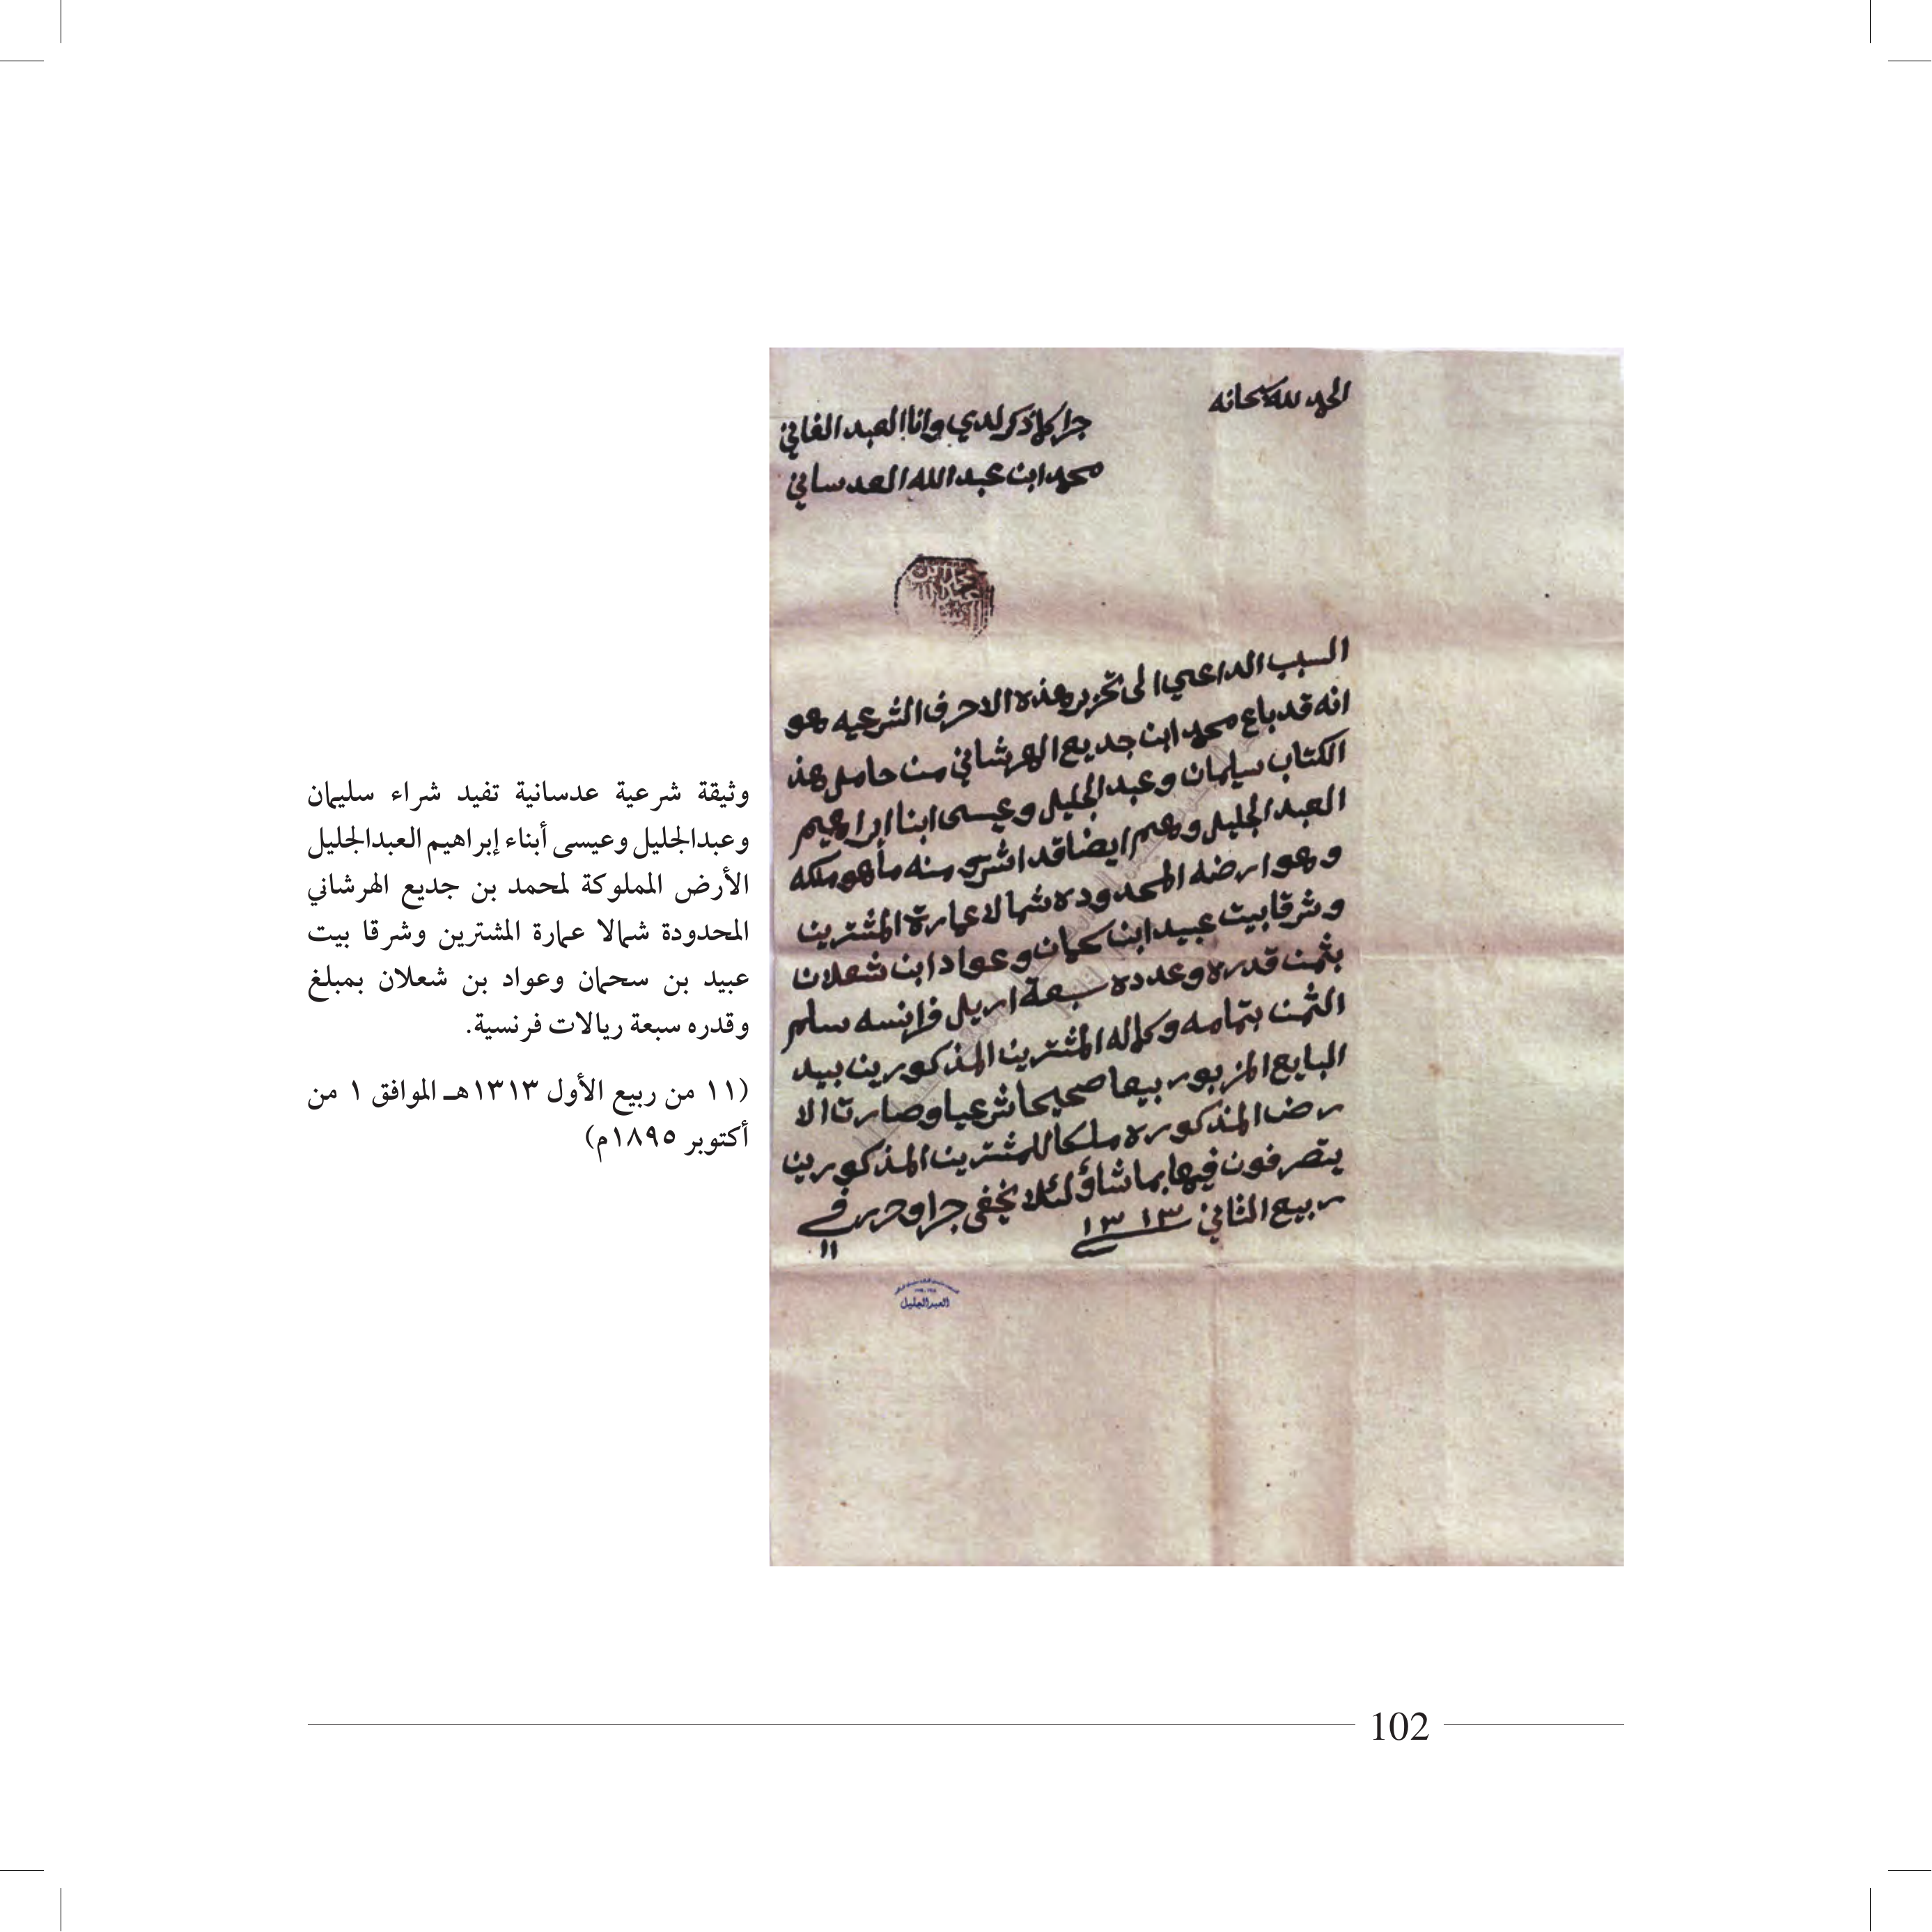 الحمد لله سبحانه
جرا كما ذكر لدي وانا العبد الفاني
محمد ابن عبد الله العدساني
السبب الداعي الى تحرير هذه الاحرف الشرعيه هو
انه قد باع محمد ابن جديع الهرشاني من حامل هذ
الكتاب سليمان وعبد الجليل وعيسى ابنا ابراهيم
العبد الجليل وهم ايضا قد اشترو منه ما هو ملكه
وهو ارضه المحدوده شمالا عمارة المشترين
وشرقا بيت عبيد ابن سحمان وعواد ابن شعلان
بثمن قدره وعدده سبعة اريل فرانسه سلم
الثمن بتمامه وكماله المشترين المذكورين بيد
البايع المزبور بيعا صحيحا شرعيا وصارت الا
رض المذكوره ملكا للمشترين المذكورين
يتصرفون فيها بما شاؤ لئلا يخفى جرا وحرر في
١١
ربيع الثاني ١٣١٣
العبدالجليل
وثيقة شرعية عدسانية تفيد شراء سليمان
وعبدالجليل وعيسى أبناء إبراهيم العبدالجليل
الأرض المملوكة لمحمد بن جديع الهرشاني
المحدودة شمالا عمارة المشترين وشرقا بيت
عبيد بن سحمان وعواد بن شعلان بمبلغ
وقدره سبعة ريالات فرنسية.
(١١ من ربيع الأول ١٣١٣هـ الموافق ١ من
أكتوبر ١٨٩٥م)
102